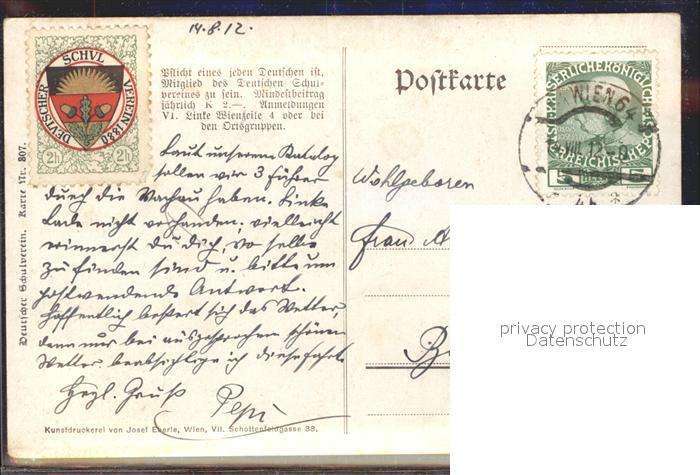 14.8.12.
DEUTSCHER SCHVL VEREIN 1880
2h 2h
Pflicht eines jeden Deutschen ist,
Mitglied des Deutschen Schul-
vereines zu sein. Mindestbeitrag
jährlich K 2.—. Anmeldungen
VI. Linke Wienzeile 4 oder bei
den Ortsgruppen.
Postkarte
KAISERLICHE KÖNIGLICHE
ÖSTERREICHISCHE
WIEN 64
VIII. 12
Deutscher Schulverein. Karte Nr. 807.
Laut unserem Katalog
sollen wir 3 Führer
durch die Wachau haben. Linke
Lade nicht vorhanden; vielleicht
erinnerst du dich, wo selbe
zu finden sind u. bitte um
postwendende Antwort.
Hoffentlich bessert sich das Wetter,
denn nur bei ausgesprochen schönem
Wetter beabsichtige ich diese Fahrt.
Herzl. Gruß
Pepi
Wohlgeboren
Frau
Kunstdruckerei von Josef Eberle, Wien, VII. Schottenfeldgasse 38.
privacy protection
Datenschutz